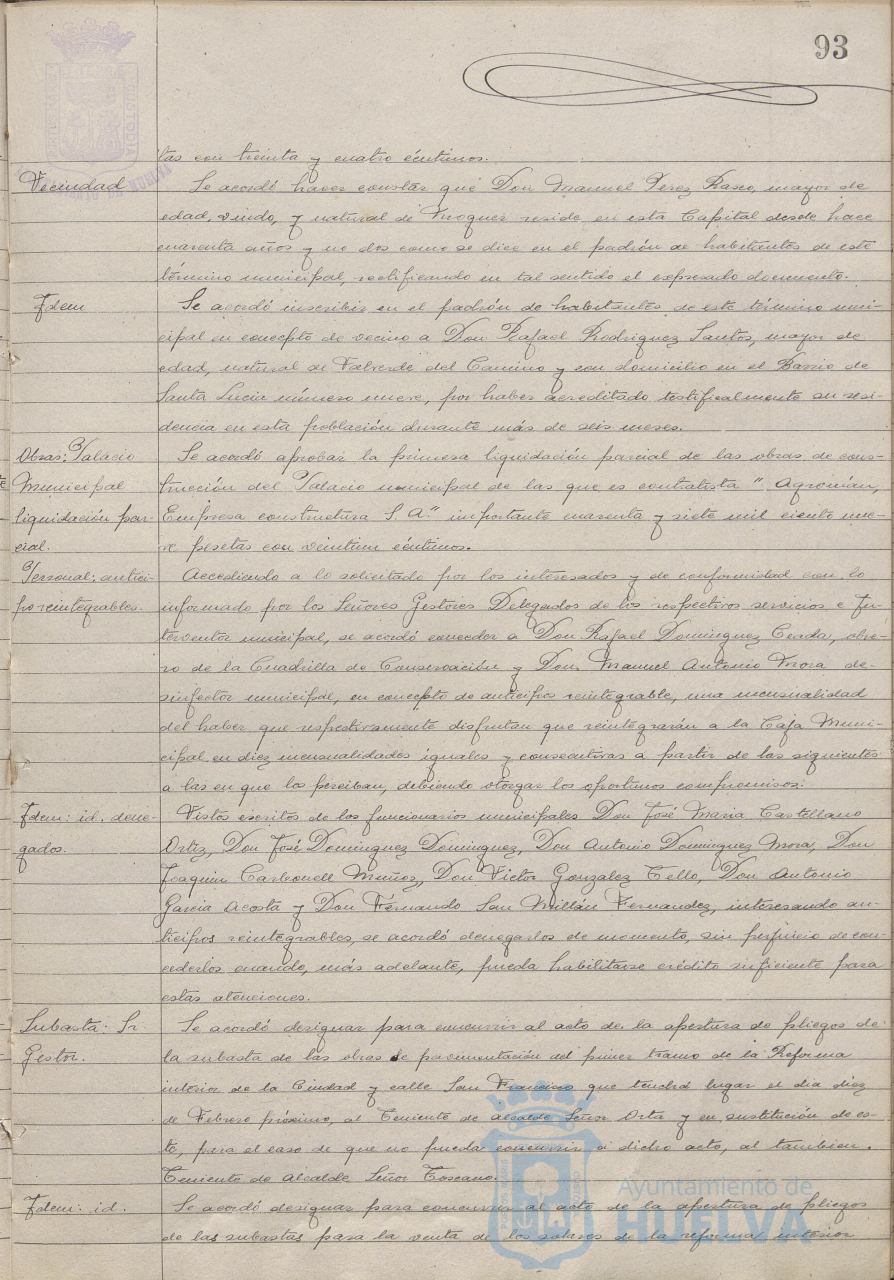 93
tas con treinta y cuatro céntimos.
Vecindad
Se acordó hacer constar que Don Manuel Perez Rasco, mayor de
edad, viudo, y natural de Moguer reside en esta Capital desde hace
cuarenta años y no dos como se dice en el padrón de habitantes de este
término municipal, rectificando en tal sentido el expresado documento.
Idem
Se acordó inscribir en el padrón de habitantes de este término muni-
cipal en concepto de vecino a Don Rafael Rodriguez Santos, mayor de
edad, natural de Valverde del Camino y con domicilio en el Barrio de
Santa Lucia número nueve, por haber acreditado testificalmente su resi-
dencia en esta población durante más de seis meses.
Obras: Palacio
Municipal
liquidación par-
cial.
Se acordó aprobar la primera liquidación parcial de las obras de cons-
trucción del Palacio municipal de las que es contratista " Agromán,
Empresa constructura S. A." importante cuarenta y siete mil ciento nue-
ve pesetas con veintiun céntimos.
Personal: antici-
po reintegrables.
Accediendo a lo solicitado por los interesados y de conformidad con lo
informado por los Señores Gestores Delegados de los respectivos servicios e In-
terventor municipal, se acordó conceder a Don Rafael Dominguez Cerda, obre-
ro de la Cuadrilla de Conservación y Don Manuel Antonio Mora de-
sinfector municipal, en concepto de anticipos reintegrable, una mensualidad
del haber que respectivamente disfrutan que reintegrarán a la Caja Muni-
cipal en diez mensualidades iguales y consecutivas a partir de las siguientes
a las en que las perciban, debiendo otorgar los oportunos compromisos.
Idem: id. dene-
gados.
Vistos escritos de los funcionarios municipales Don José Maria Castellano
Ortiz, Don José Dominguez Dominguez, Don Antonio Dominguez Mora, Don
Joaquin Carbonell Muñoz, Don Victor Gonzalez Tello, Don Antonio
Garcia Acosta y Don Fernando San Millán Fernandez, interesando an-
ticipos reintegrables, se acordó denegarlos de momento, sin perjuicio de con-
cederlos cuando, más adelante, pueda habilitarse crédito suficiente para
estas atenciones.
Subasta: Sr.
Gestor.
Se acordó designar para concurrir al acto de la apertura de pliegos de
la subasta de las obras de pavimentación del primer tramo de la Reforma
interior de la Ciudad y calle San Francisco que tendrá lugar el dia diez
de Febrero próximo, al Teniente de Alcalde Señor Orta y en sustitución de es-
te, para el caso de que no pueda concurrir a dicho acto, al tambien
Teniente de Alcalde Señor Toscano.
Idem: id.
Se acordó designar para concurrir al acto de la apertura de pliegos
de las subastas para la venta de los solares de la reforma interior
Ayuntamiento de
HUELVA